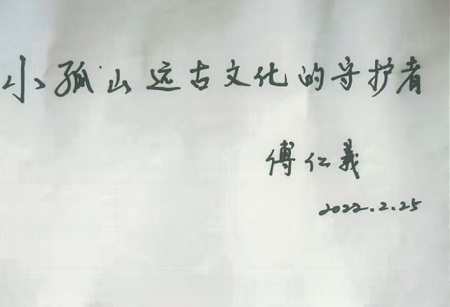 小孤山远古文化的守护者
傅仁義
2022.2.25